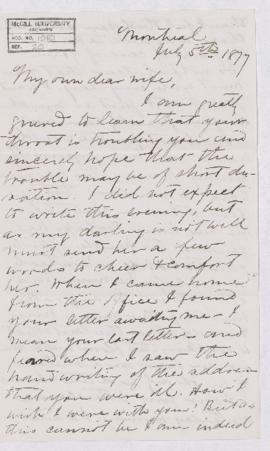 McGILL UNIVERSITY
ARCHIVES
ACC. NO.
REF.
Montreal
July 5th 1877
My own dear wife,
I am greatly
grieved to learn that your
throat is troubling you and
sincerely hope that the
trouble may be of short du-
ration. I did not expect
to write this evening, but
as my darling is not well
must send her a few
words to cheer & comfort
her. When I came home
from the office I found
your letter awaiting me - I
mean your last letter - and
feared when I saw the
handwriting of the address
that you were ill. How I
wish I were with you! But as
this cannot be I am indeed